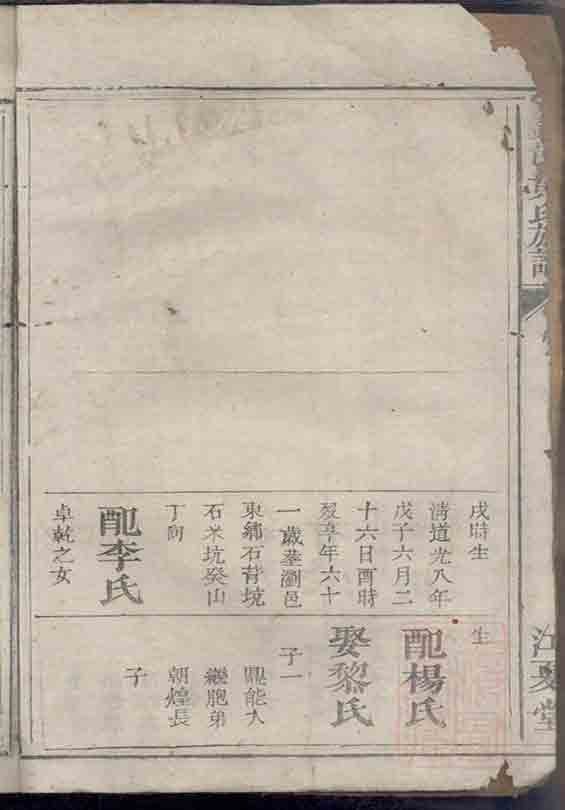 黃氏族譜
江夏堂
戌時生
清道光八年
戊子六月二
十六日酉時
歿享年六十
一歲塟瀏邑
東鄉石背坑
石米坑癸山
丁向
配李氏
卓乾之女
生
配楊氏
娶黎氏
子一
鼎能入
繼胞弟
朝煌長
子